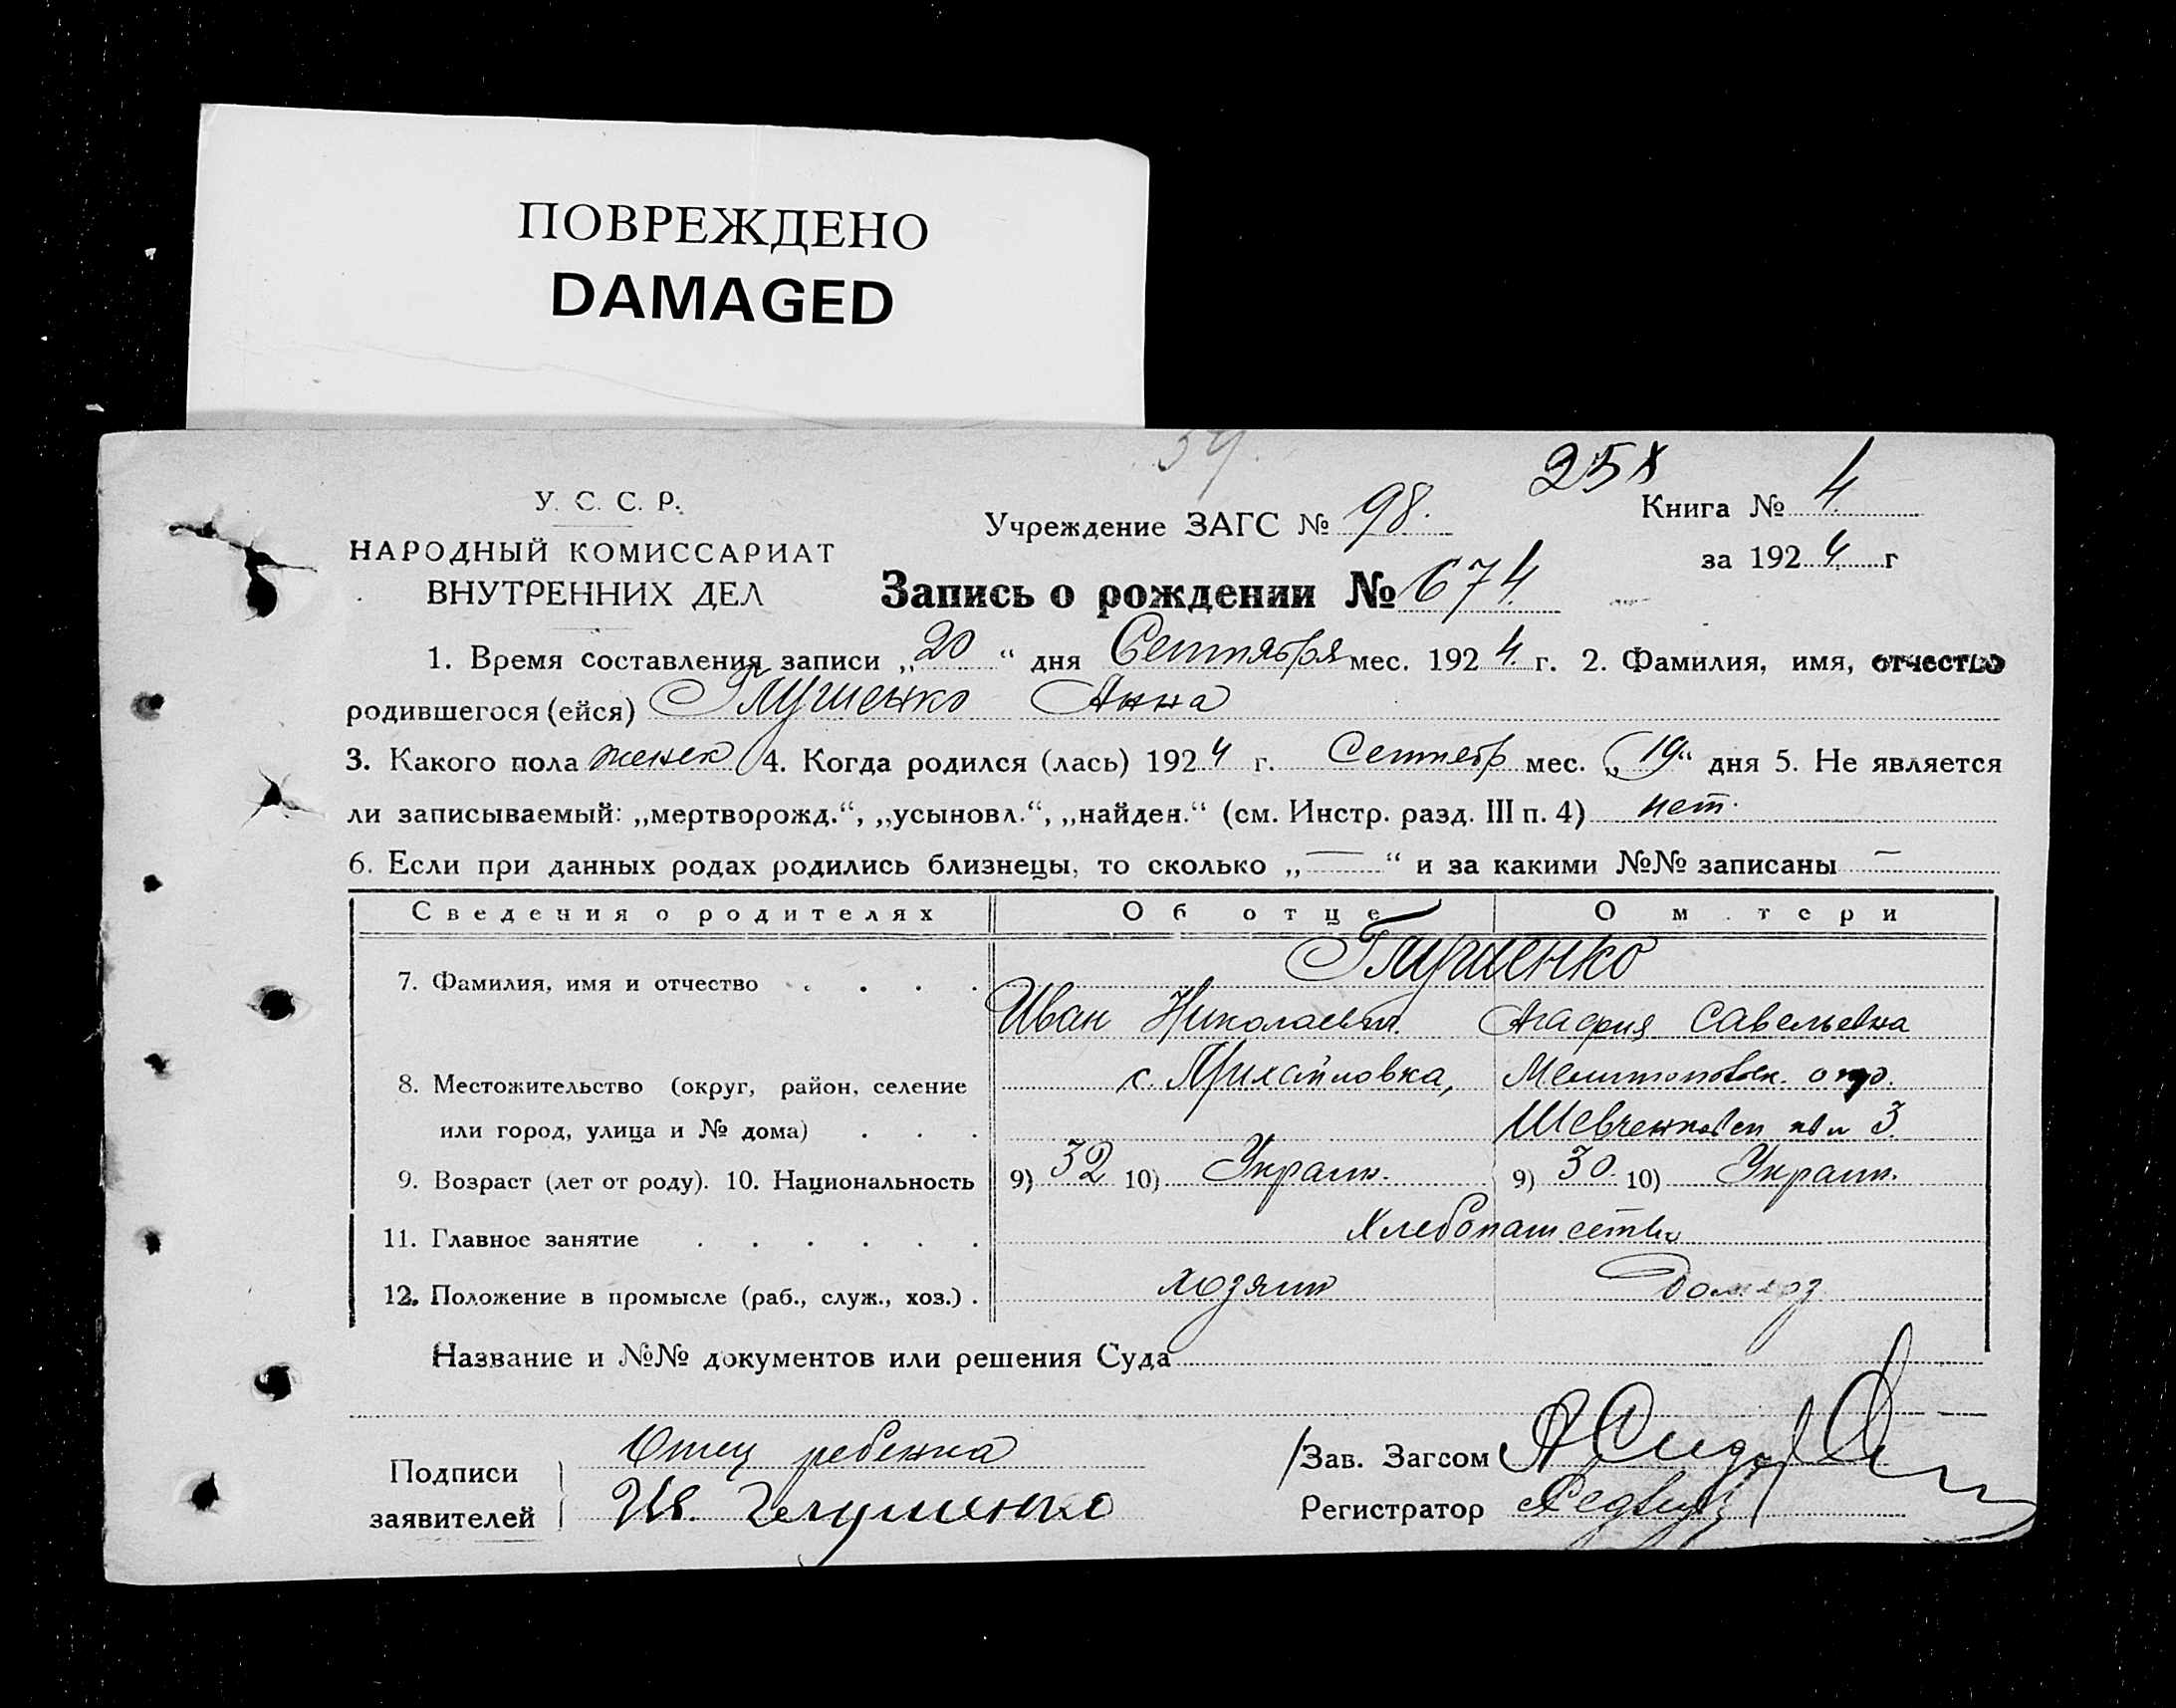 ПОВРЕЖДЕНО
DAMAGED
39.
258
У. С. С. Р.
НАРОДНЫЙ КОМИССАРИАТ
ВНУТРЕННИХ ДЕЛ
Учреждение ЗАГС № 98.
Книга № 4
за 1924 г
Запись о рождении № 674.
1. Время составления записи „20“ дня Сентября мес. 1924. г. 2. Фамилия, имя, отчество
родившегося (ейся) Глушенко Анна
3. Какого пола женск 4. Когда родился (лась) 1924 г. Сентябр мес. „19“ дня 5. Не является
ли записываемый: „мертворожд.“, „усыновл.“, „найден.“ (см. Инстр. разд. III п. 4) нет.
6. Если при данных родах родились близнецы, то сколько „—“ и за какими №№ записаны —
Сведения о родителях Об отце О м.тери
7. Фамилия, имя и отчество . . . . Глушенко
Иван Николаевич. Агафия Савельевна
8. Местожительство (округ, район, селение с. Михайловка, Мелитопольск. окр.
или город, улица и № дома) . . . Шевченковск 3.
9. Возраст (лет от роду). 10. Национальность 9) 32 10) Украин. 9) 30. 10) Украин.
11. Главное занятие . . . . . . Хлебопашество
12. Положение в промысле (раб., служ., хоз.) . хозяин домхоз
Название и №№ документов или решения Суда
Подписи
заявителей
Отец ребенка
Ив. Глушенко
Зав. Загсом
Регистратор